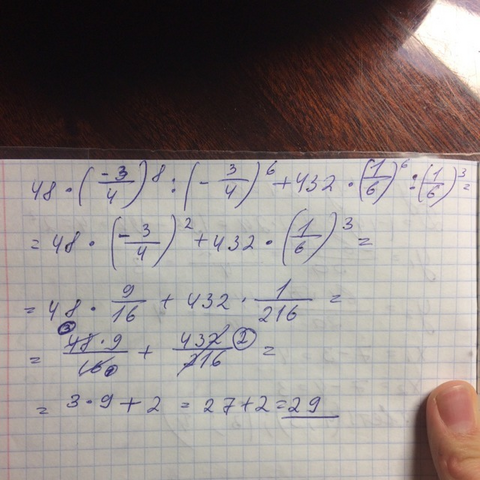 48 · (-3/4)^8 : (-3/4)^6 + 432 · (1/6)^6 : (1/6)^3 =
= 48 · (-3/4)^2 + 432 · (1/6)^3 =
= 48 · 9/16 + 432 · 1/216 =
= 48 · 9/16 + 432/216 = 3 1 2 1
= 3 · 9 + 2 = 27 + 2 = 29